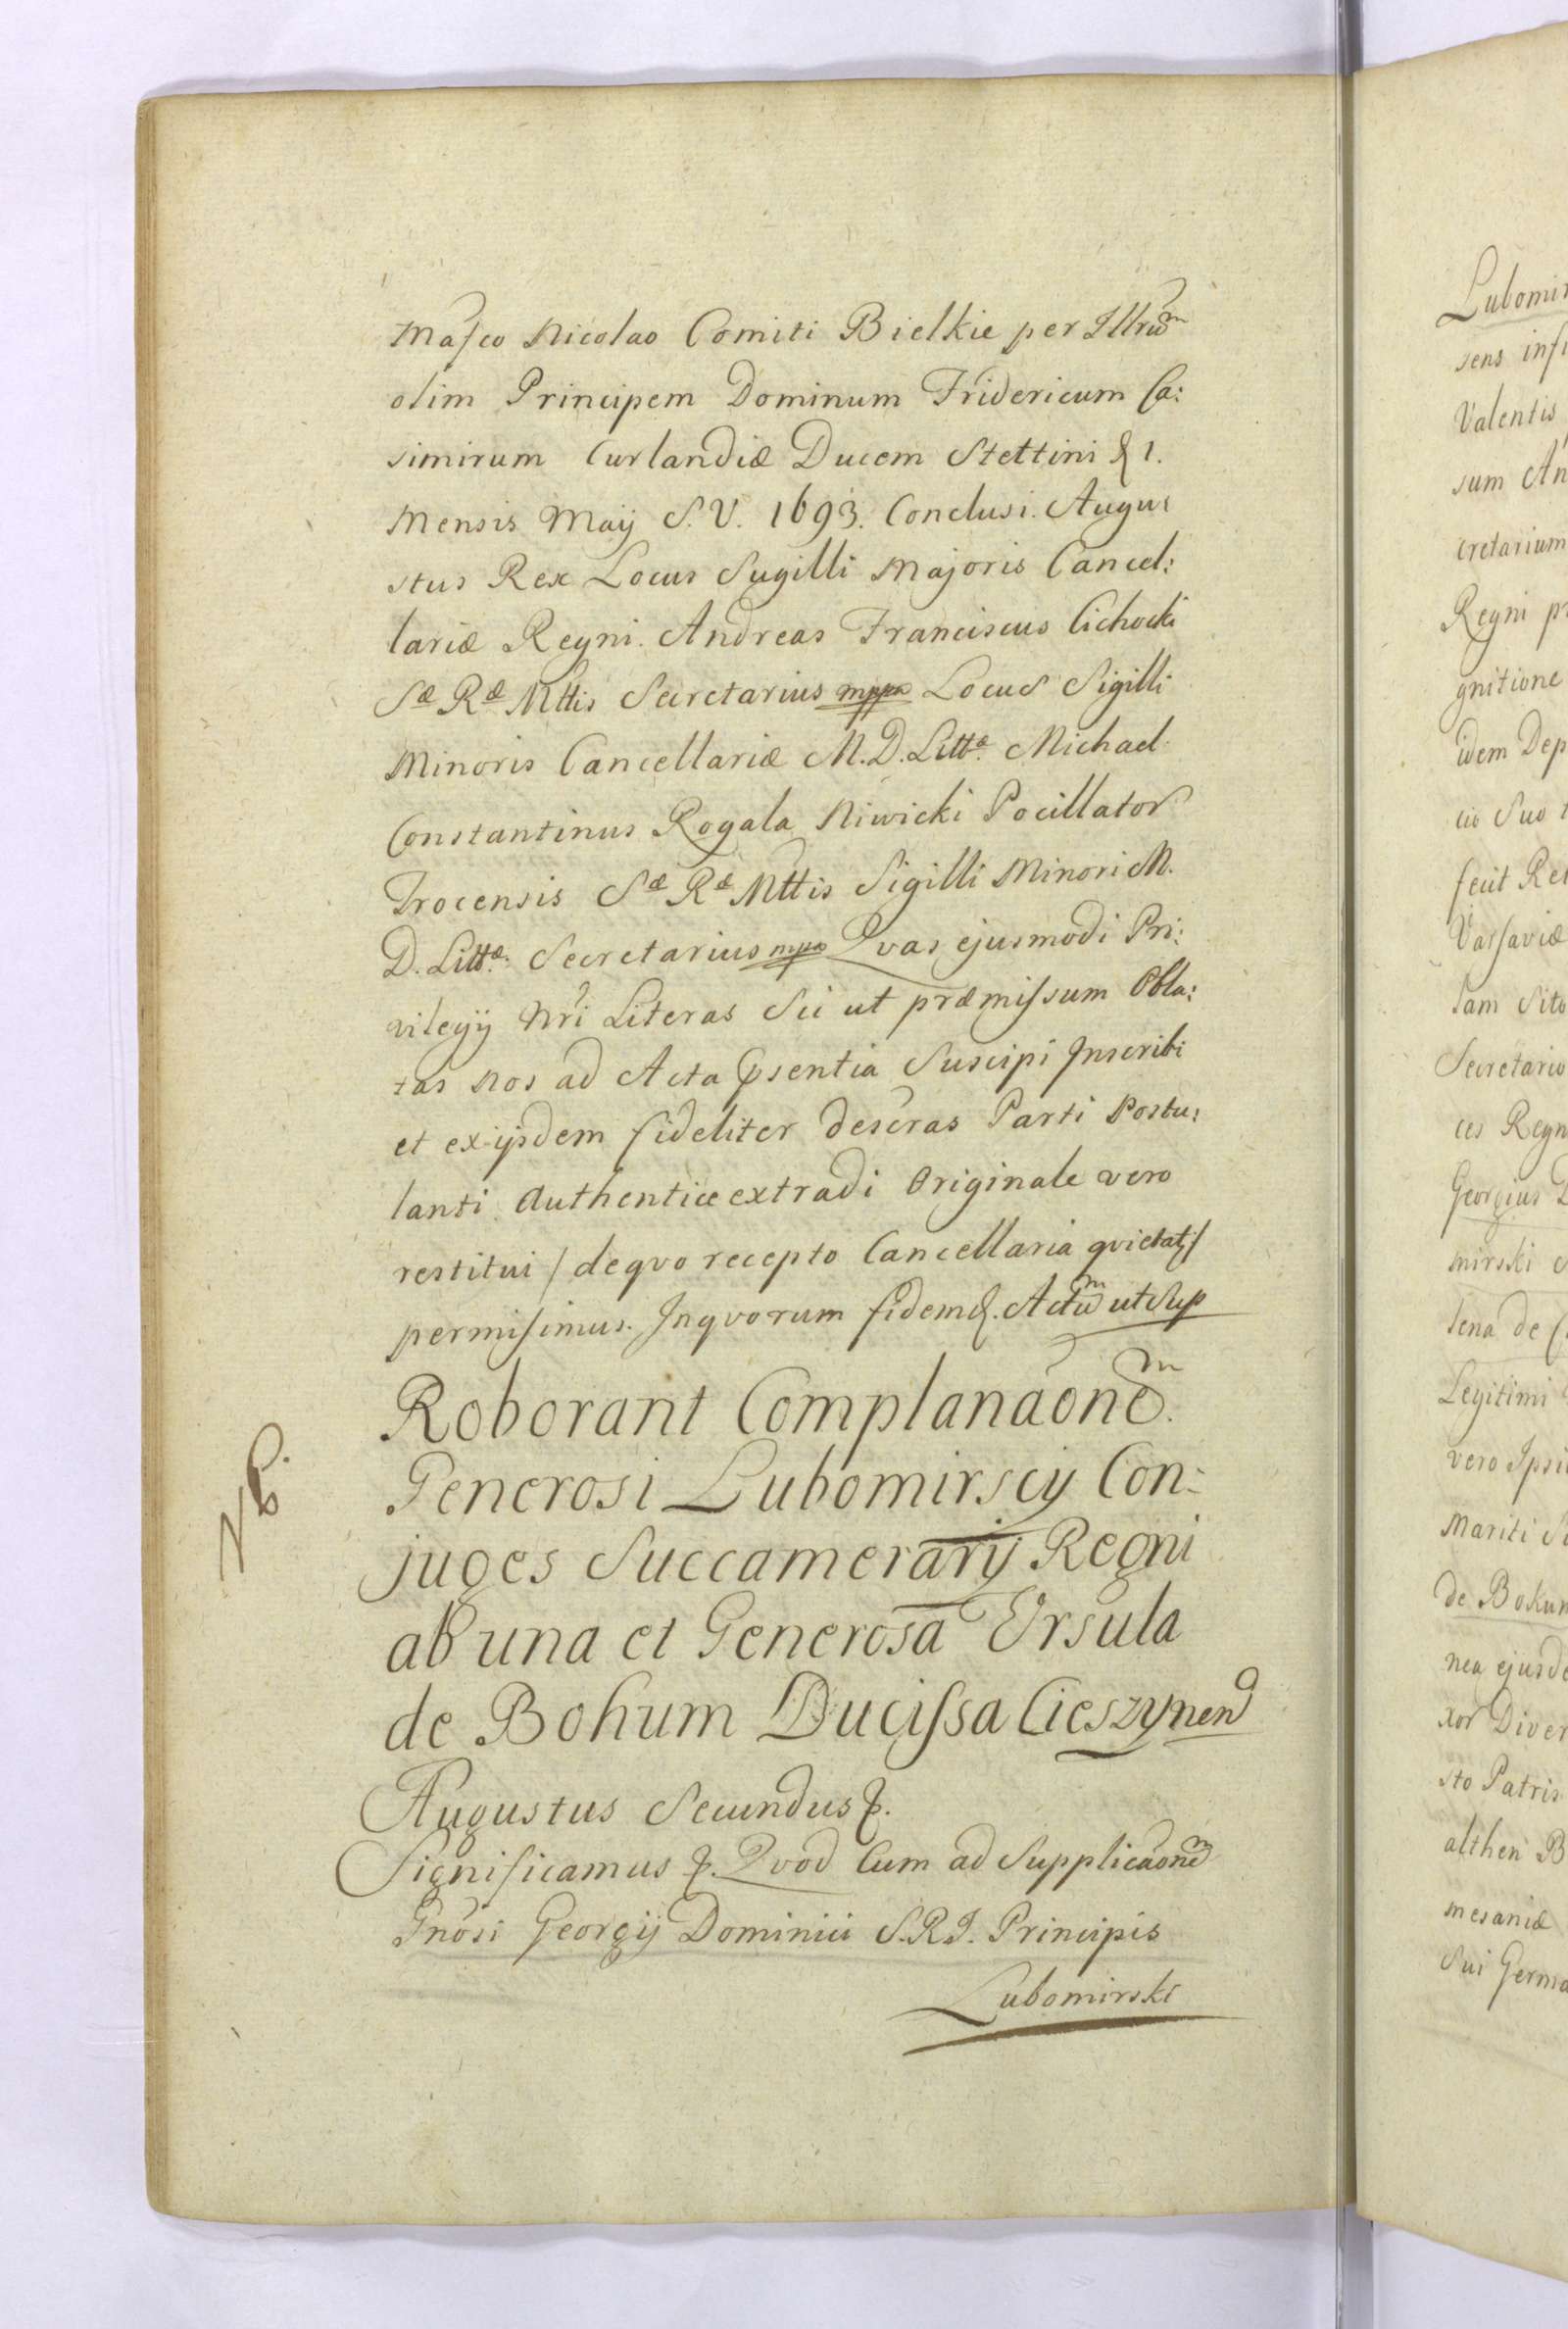 Mafco Nicolao Comiti Bielkie per Illrum
olim Principem Dominum Fridericum Ca:
simirum Curlandiæ Ducem Stettini & 1.
Mensis Maÿ S.V. 1693. Conclusi. Augu:
stus Rex Locus Sugilli Majoris Cancel:
lariæ Regni. Andreas Franciscus Cichocki
Sæ Ræ Mttis Secretarius mppa Locus Sigilli
Minoris Cancellariæ M.D.Littæ. Michael
Constantinus Rogala Niwicki Pocillator
Trocensis Sæ Ræ Mttis Sigilli Minori M.
D. Littæ. Secretarius mpa Qvas ejusmodi Pri:
vilegÿ Nri Literas Sic ut præmissum Obla:
tas Nos ad Acta Psentia Suscipi Inscribi
et ex ijsdem fideliter descras Parti Postu:
lanti Authentice extradi Originale vero
restitui / de qvo recepto Cancellaria qvietat /
permisimus. In qvorum fidem &. Actum ut Sup
Roborant Complanaonem.
Generosi Lubomirscÿ Con:
juges Succamerarÿ Regni
ab una et Generosa Ursula
de Bohum Ducissa Cieszynen
NB.
Augustus Secundus &.
Significamus &. Qvod Cum ad Supplicaonem
Gnosi Georgÿ Dominici S.R.I. Principis
Lubomirski
Lubomir
sens insi
Valentis
sum An
cretarium
Regni pr
gnitione
idem Dep
cio Suo
fecit Re
Varsaviæ
lam Sito
Secretario
ces Regn
Georgius D
mirski
lena de
Legitimi
vero Ipsi
Mariti
de Bokum
nea ejusde
xor Diver
sto Patris
althen B
mesaniæ
Sui Germa